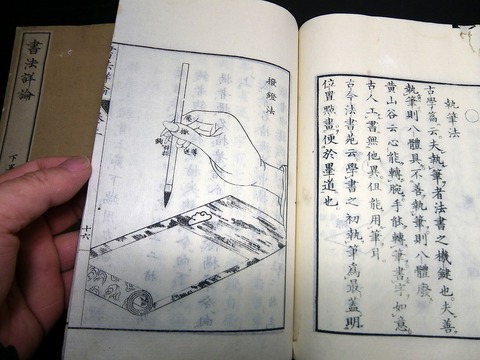 執筆法
古學篇云夫執筆者法書之機鍵也夫善
執筆則八體具不善執筆則八體廢
黄山谷云心能轉腕手能轉筆書字如意
古人工書無他異但能用筆耳
古今法書苑云學書之初執筆為最蓋明
位置點畫便於墨道也
撥鐙法
十六
書法詳論
下